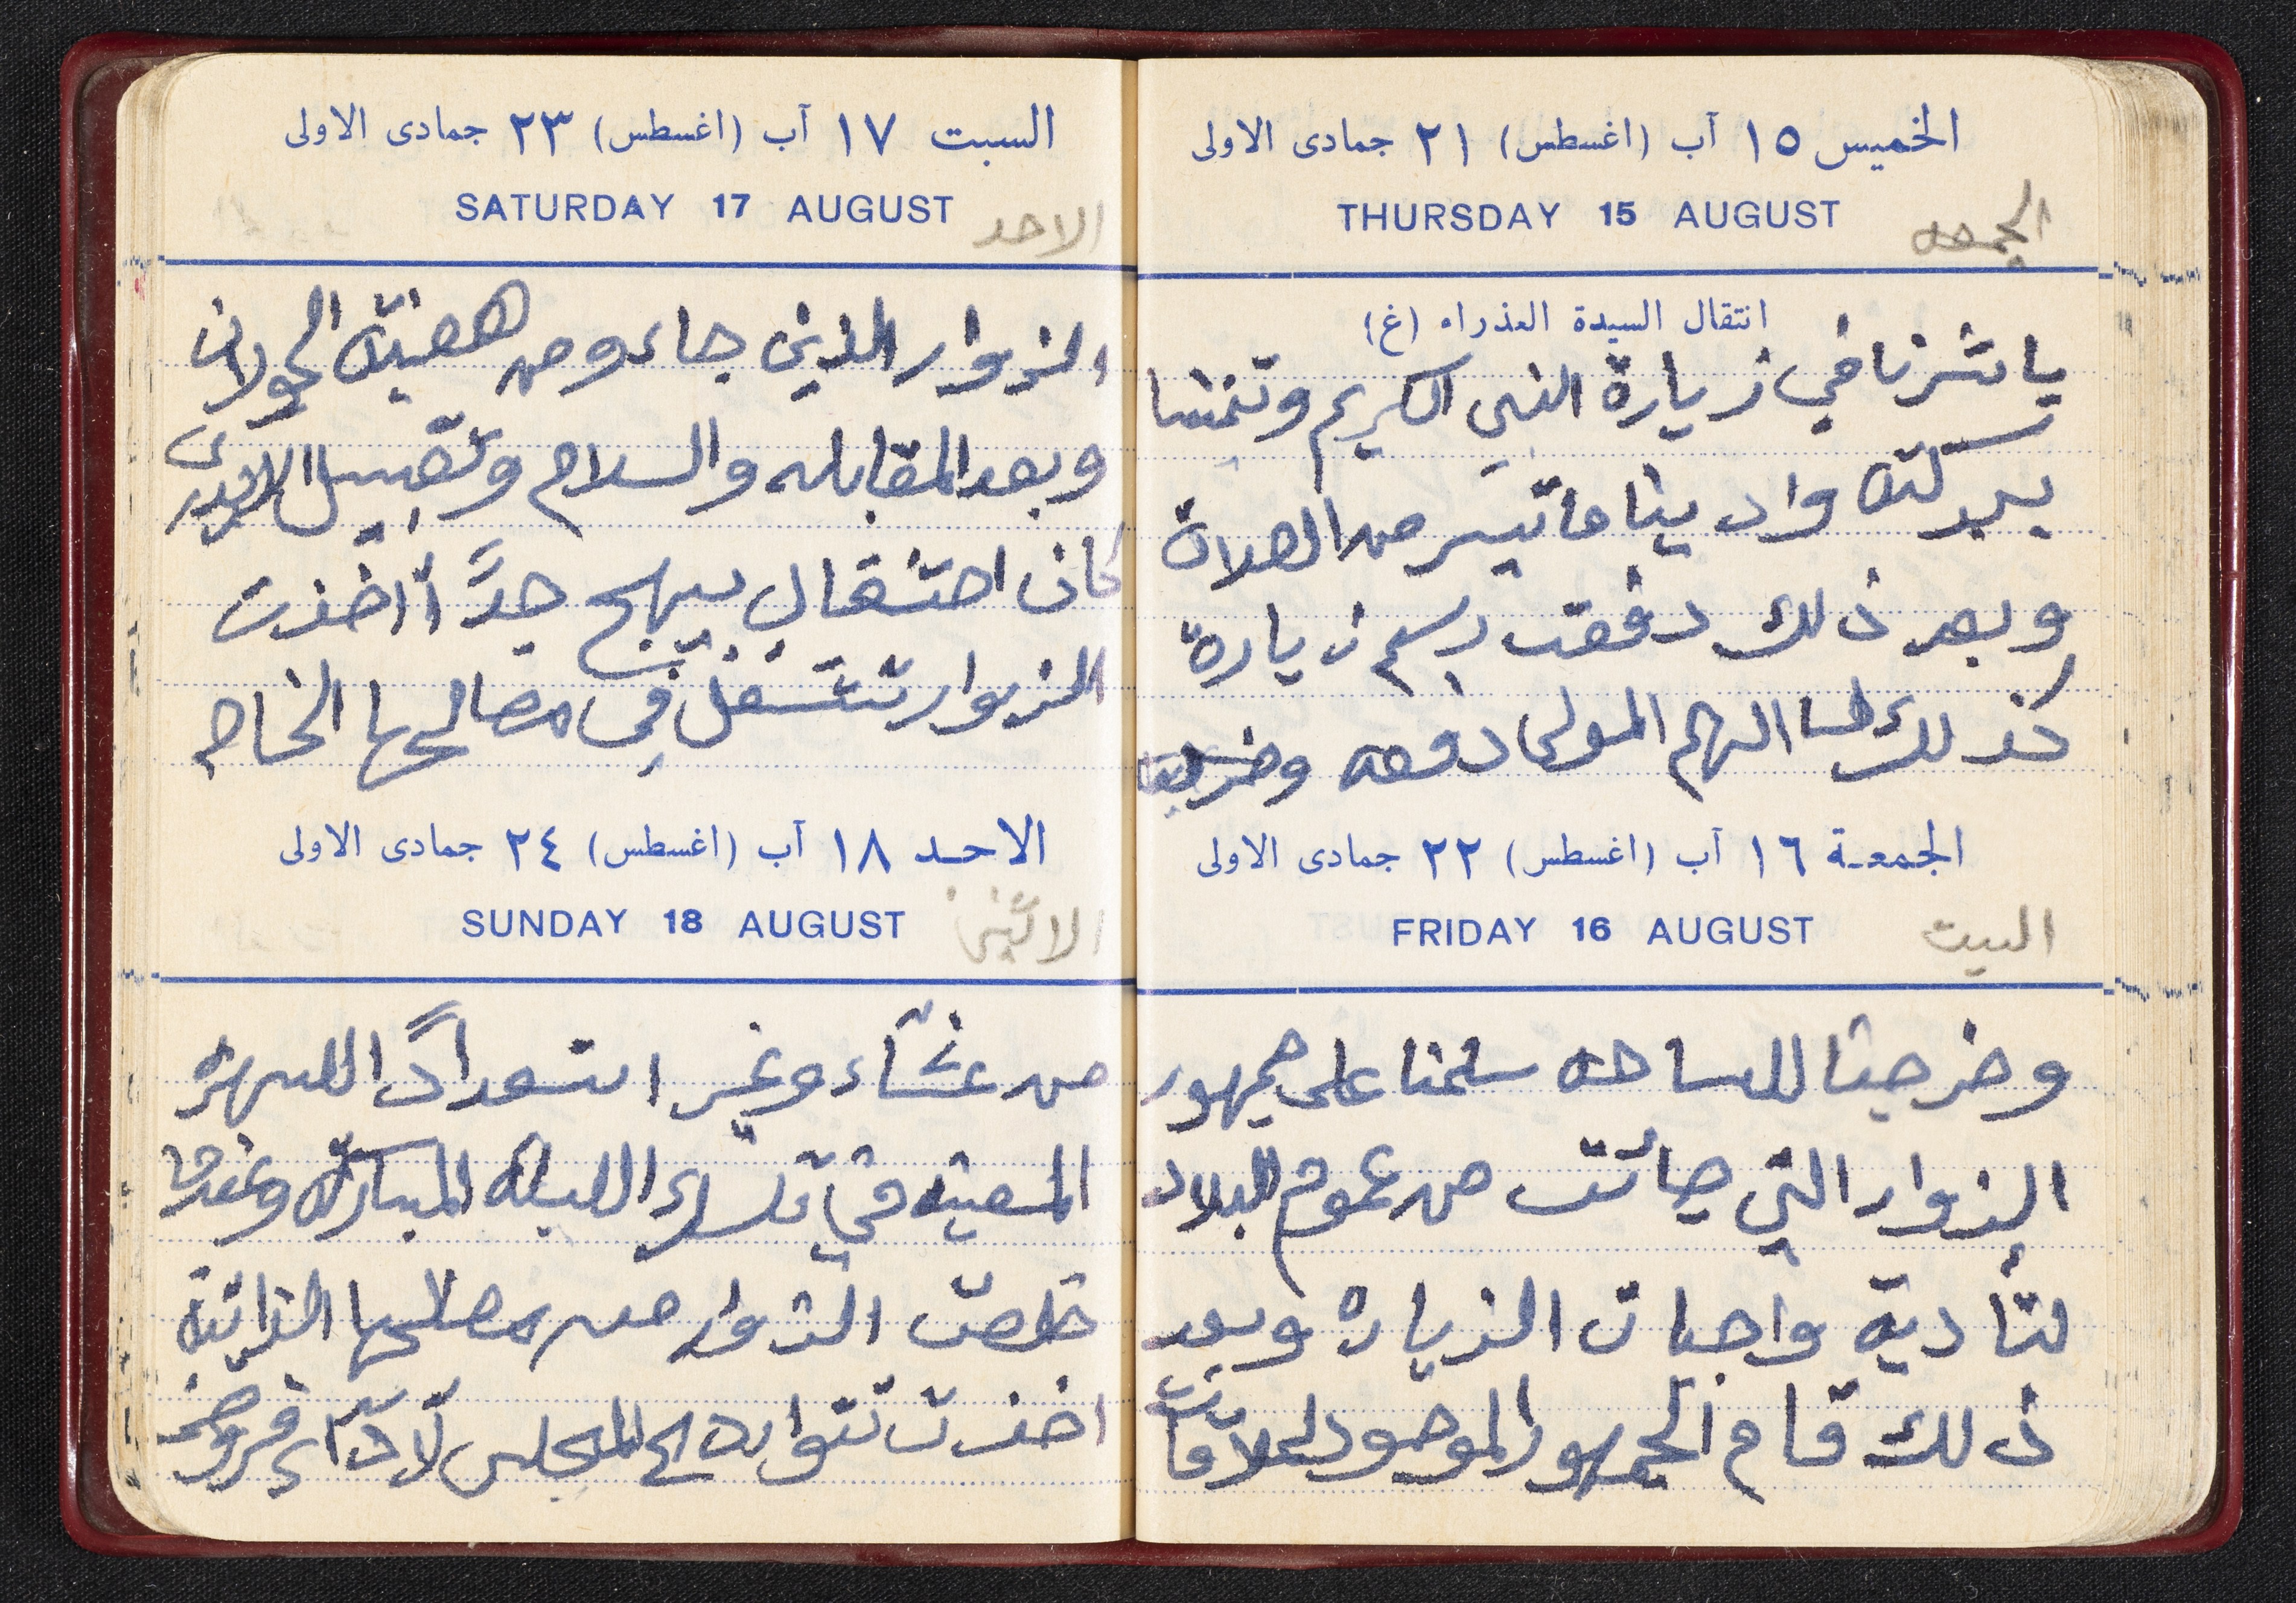 الخميس ١٥ آب (اغسطس) ٢١ جمادى الاولى
THURSDAY 15 AUGUST
الجمعه
انتقال السيدة العذراء (غ)
باشرنا في زيارة النبي الكريم
بركته وادينا ماتيسر من الصلاة
وبعد ذلك دفعت رسم زيارة
كذلك الهم المولى دفعه
الجمعـة ١٦ آب (اغسطس) ٢٢ جمادى الاولى
FRIDAY 16 AUGUST
السبت
وخرجنا للساحه سلمنا على جمهور
الزوار التي جائت من عموم البلاد
لتأدية واجبات الزياره وبعد
ذلك قام الجمهور الموجود لملاقات
السبت ١٧ آب (اغسطس) ٢٣ جمادى الاولى
SATURDAY 17 AUGUST
الاحد
الزوار الذين جاءو من هضبة الجولان
وبعد المقابله والسلام وتقبيل الايدي
كان احتفال بيهج جدًا أاخذت
الزوار تشتغل في مصالحها الخاصه
الاحـد ١٨ آب (اغسطس) ٢٤ جمادى الاولى
SUNDAY 18 AUGUST
الاثنين
من عشاء وغير استعدادًا للسهره
في تلك الليله المباركه وعندما
خلصت الزوار من مصلحها الذاتية
اخذت تتوارد الى المجلس لأدآء فروض